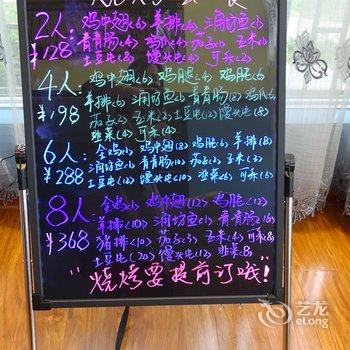 2人: 鸡中翅(6) 羊排(6) 三月坊鱼(1)
¥128 青青肠(4) 鸡爪(4) 茄子(2) 玉米(2)
土豆片(4) 馒头片(4) 可乐(2)
4人: 鸡中翅(6) 鸡腿(4)
¥198 羊排(6) 三月坊鱼(2) 青青肠(8) 鸡爪(6)
茄子(2) 玉米(2) 土豆片(8) 馒头片(8)
韭菜(4) 可乐(4)
6人: 全鸡(1) 鸡中翅(6) 鸡腿(6) 羊排(8)
三月坊鱼(2) 青青肠(10) 茄子(2) 玉米(3)
¥288 土豆片(12) 馒头片(10) 韭菜(6) 可乐(6)
8人: 全鸡(1) 鸡中翅(12) 鸡腿(12)
羊排(10) 三月坊鱼(2) 青青肠(16)
¥368 猪排(10) 茄子(3) 玉米(4) 可乐(8)
土豆片(20) 馒头片(12) 韭菜(8)
"烧烤要提前订哦!"
艺龙
eLong